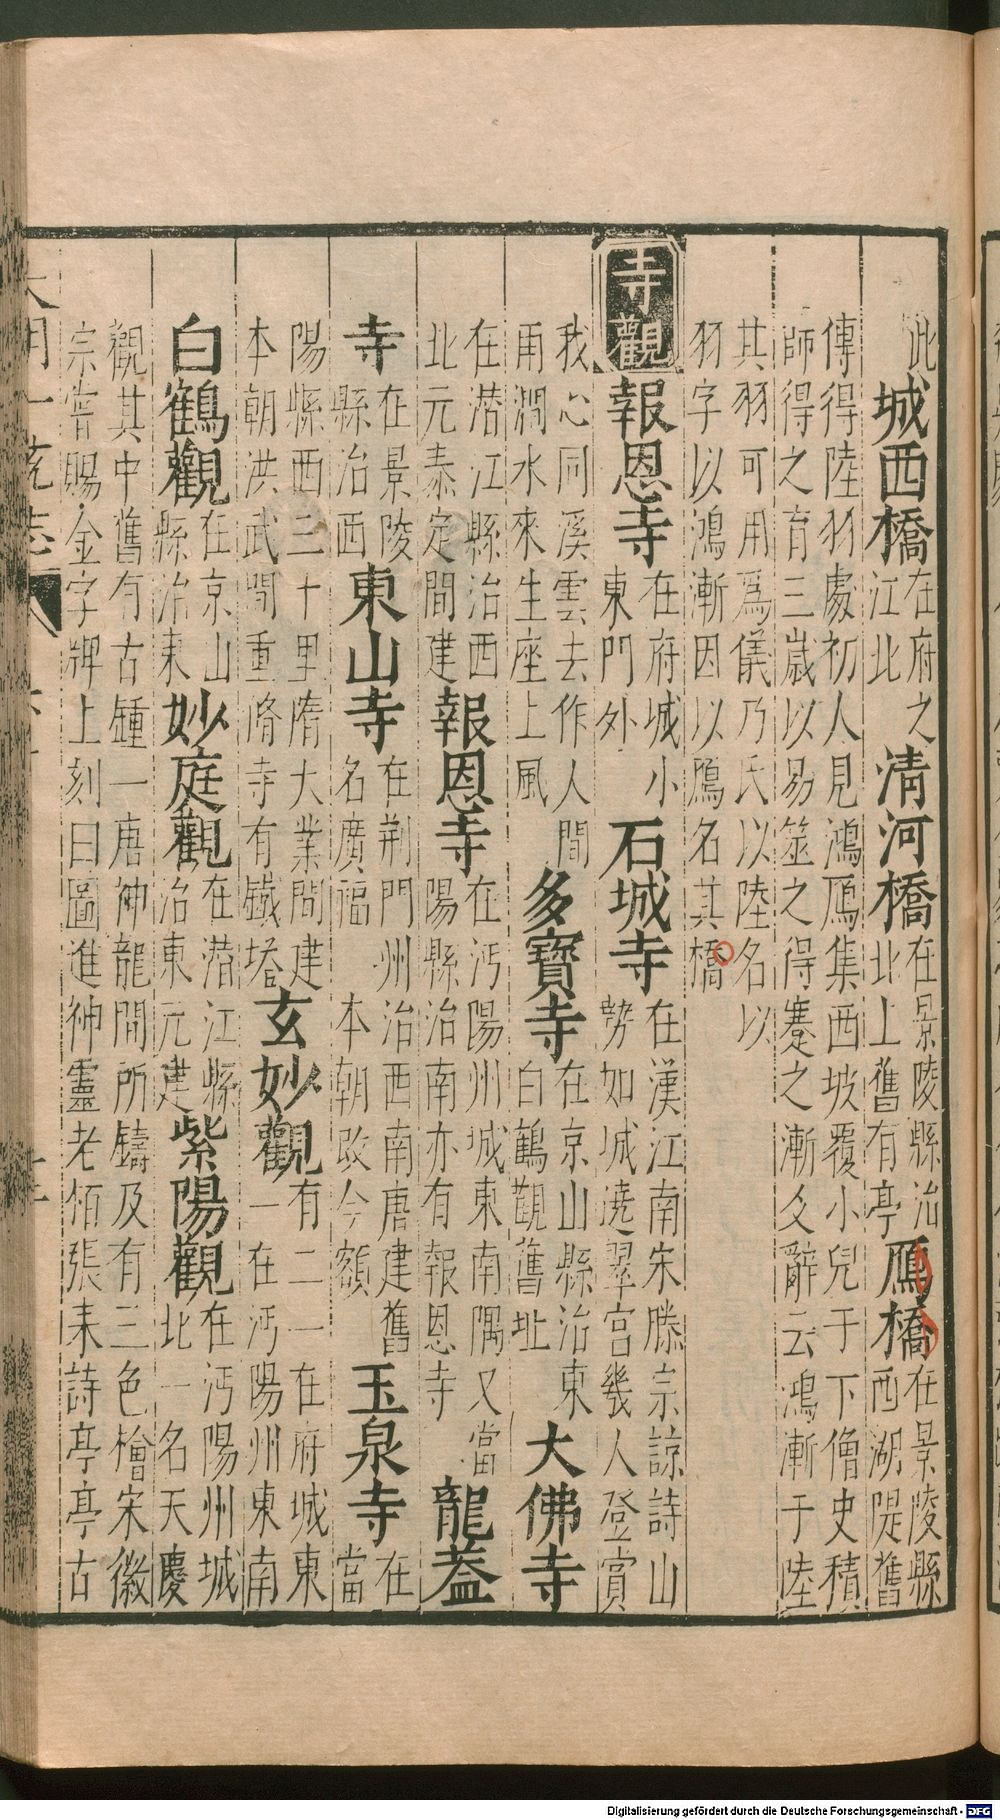 此城西橋在府之江北清河橋在景陵縣治北上舊有亭鴈橋在景陵縣西湖隄舊
傳得陸羽處初人見鴻鴈集西坡覆小兒于下僧史積
師得之育三歲以易筮之得蹇之漸爻辭云鴻漸于陸
其羽可用爲儀乃氏以陸名以
羽字以鴻漸因以鴈名其橋
寺觀報恩寺在府城小東門外石城寺在漢江南宋滕宗諒詩山勢如城遶翠宮幾人登賞
我心同溪雲去作人間
雨澗水來生座上風多寶寺在京山縣治東白鶴觀舊址大佛寺
在潛江縣治西北元泰定間建報恩寺在沔陽州城東南隅又當陽縣治南亦有報恩寺龍蓋
寺在景陵縣治西東山寺在荆門州治西南唐建舊名廣福本朝改今額玉泉寺在當
陽縣西三十里隋大業間建
本朝洪武間重脩寺有鐵塔玄妙觀有二一在府城東一在沔陽州東南
白鶴觀在京山縣治東妙庭觀在潛江縣治東元建紫陽觀在沔陽州城北一名天慶
觀其中舊有古鍾一唐神龍間所鑄及有三色檜宋徽
宗嘗賜金字牌上刻曰圖進神靈老栢張耒詩亭亭古
大明一統志
Digitalisierung gefördert durch die Deutsche Forschungsgemeinschaft - DFG